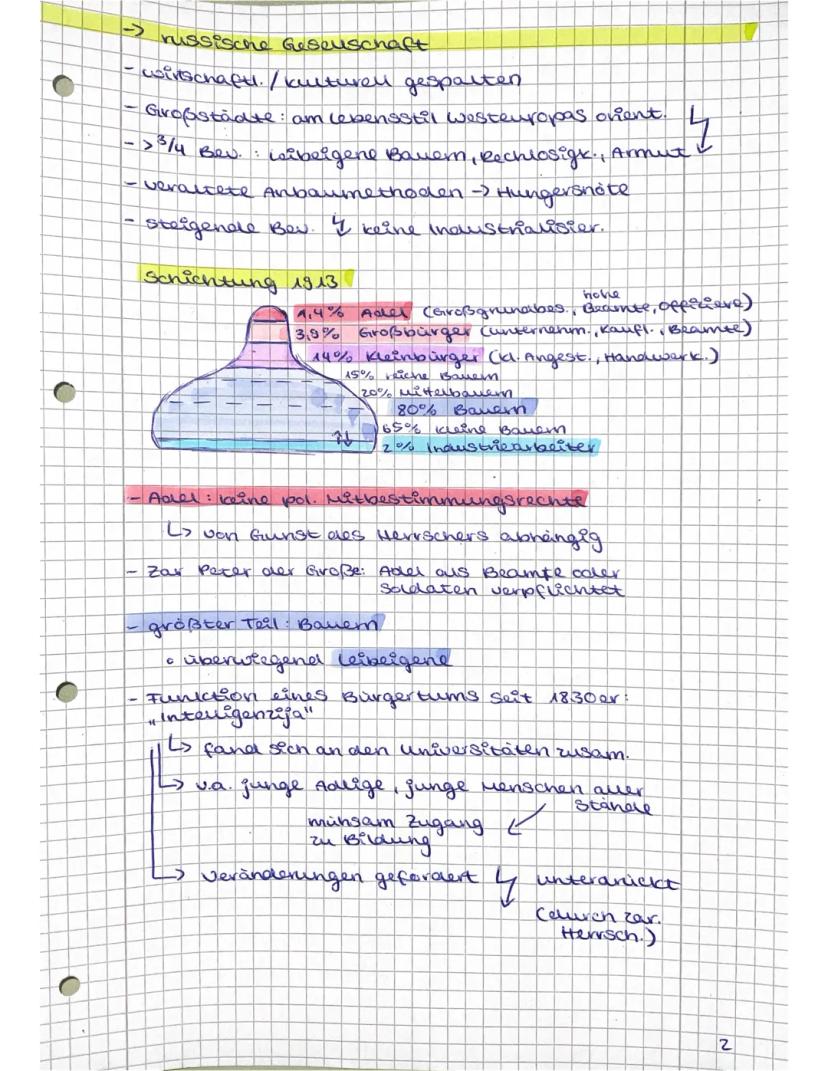 -> russische Gesellschaft
- wirtschaftl. / kulturell gespalten
- Großstädte: am Lebensstil Westeuropas orient.
- > 3/4 Bev.: Leibeigene Bauern, Rechlosigk., Armut
- veraltete Anbaumethoden -> Hungersnöte
- steigende Bev. ↯ keine Industrialisier.
Schichtung 1913
1,4% Adel (Großgrundbes., hohe Beamte, Offiziere)
3,9% Großbürger (Unternehm., Kaufl., Beamte)
14% Kleinbürger (kl. Angest., Handwerk.)
15% reiche Bauern
20% Mittelbauern
80% Bauern
65% kleine Bauern
2% Industriearbeiter
- Adel: keine pol. Mitbestimmungsrechte
↳ von Gunst des Herrschers abhängig
- Zar Peter der Große: Adel als Beamte oder
Soldaten verpflichtet
- größter Teil: Bauern
° überwiegend Leibeigene
- Funktion eines Bürgertums seit 1830er:
„Intelligenzija"
↳ fand sich an den Universitäten zusam.
↳ v.a. junge Adlige, junge Menschen aller
Stände
mühsam Zugang
zu Bildung
↳ Veränderungen gefordert ↯ unterdrückt
(durch zar.
Herrsch.)
2